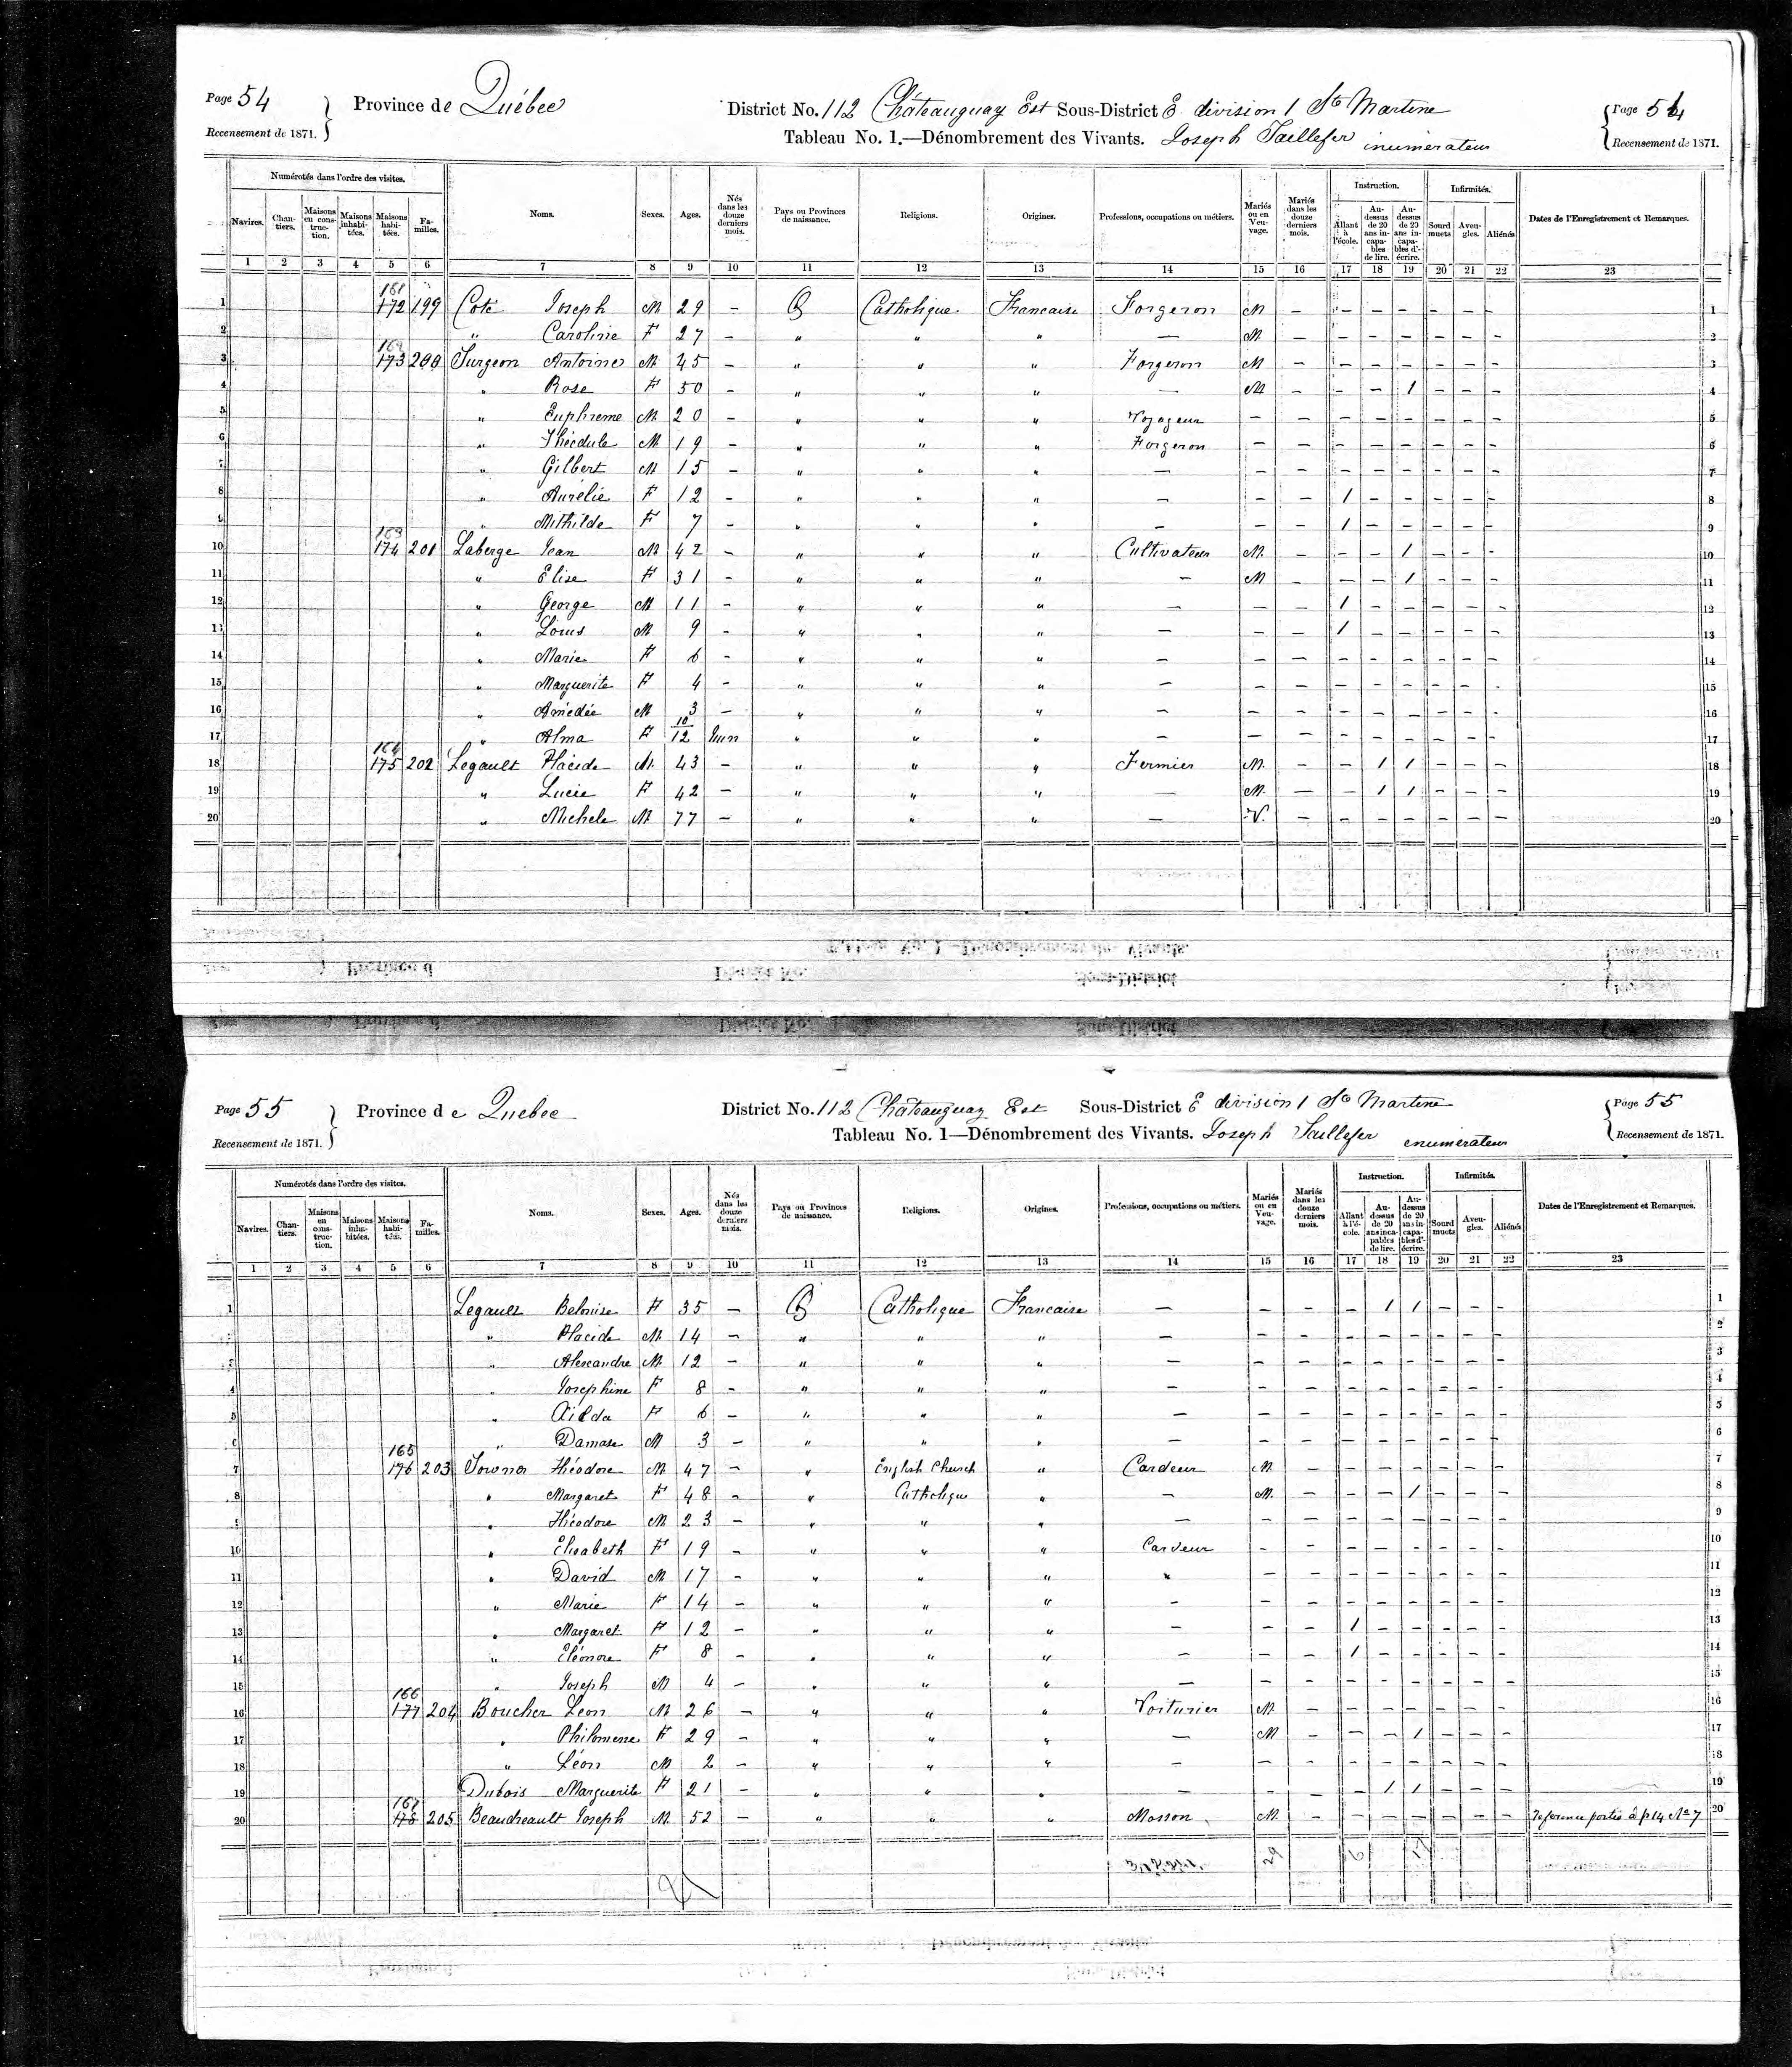 Page 54 Province de Québec District No. 112 Châteauguay Est Sous-District E division 1 Ste Martine Page 54
Recensement de 1871. Tableau No. 1.—Dénombrement des Vivants. Joseph Taillefer inumerateur Recensement de 1871.
Numérotés dans l'ordre des visites. Instruction. Infirmités.
Navires. Chantiers. Maisons en construction. Maisons inhabitées. Maisons habitées. Familles. Noms. Sexes. Ages. Nés dans les douze derniers mois. Pays ou Provinces de naissance. Religions. Origines. Professions, occupations ou métiers. Mariés ou en Veuvage. Mariés dans les douze derniers mois. Allant à l'école. Au-dessus de 20 ans incapables de lire. Au-dessus de 20 ans incapables d'écrire. Sourd muets Aveugles. Aliénés Dates de l'Enregistrement et Remarques.
1 2 3 4 5 6 7 8 9 10 11 12 13 14 15 16 17 18 19 20 21 22 23
1 161 172 199 Coté Joseph M 29 – Q Catholique Francaise Forgeron M – – – – – – – 1
2 " Caroline F 27 – " " " — M – – – – – – – 2
3 162 173 200 Turgeon Antoine M 45 – " " " Forgeron M – – – – – – – 3
4 " Rose F 50 – " " " — M – – – 1 – – – 4
5 " Euphreme M 20 – " " " Voyageur – – – – – – – – 5
6 " Théodule M 19 – " " " Forgeron – – – – – – – – 6
7 " Gilbert M 15 – " " " — – – – – – – – – 7
8 " Aurélie F 12 – " " " — – – 1 – – – – – 8
9 " Mithilde F 7 – " " " — – – 1 – – – – – 9
10 163 174 201 Laberge Jean M 42 – " " " Cultivateur M – – – 1 – – – 10
11 " Elise F 31 – " " " — M – – – 1 – – – 11
12 " George M 11 – " " " — – – 1 – – – – – 12
13 " Louis M 9 – " " " — – – 1 – – – – – 13
14 " Marie F 6 – " " " — – – – – – – – – 14
15 " Marguerite F 4 – " " " — – – – – – – – – 15
16 " Amédée M 3 – " " " — – – – – – – – – 16
17 " Alma F 10/12 Juin " " " — – – – – – – – – 17
18 164 175 202 Legault Placide M 43 – " " " Fermier M – – 1 1 – – – 18
19 " Lucie F 42 – " " " — M – – 1 1 – – – 19
20 " Michele M 77 – " " " — V. – – – – – – – 20
Page 55 Province de Quebec District No. 112 Chateauguay Est Sous-District E division 1 Ste Martine Page 55
Recensement de 1871. Tableau No. 1—Dénombrement des Vivants. Joseph Taillefer enumerateur Recensement de 1871.
Numérotés dans l'ordre des visites. Instruction. Infirmités.
Navires. Chantiers. Maisons en construction. Maisons inhabitées. Maisons habitées. Familles. Noms. Sexes. Ages. Nés dans les douze derniers mois. Pays ou Provinces de naissance. Religions. Origines. Professions, occupations ou métiers. Mariés ou en Veuvage. Mariés dans les douze derniers mois. Allant à l'école. Au-dessus de 20 ans incapables de lire. Au-dessus de 20 ans incapables d'écrire. Sourd muets Aveugles. Aliénés Dates de l'Enregistrement et Remarques.
1 2 3 4 5 6 7 8 9 10 11 12 13 14 15 16 17 18 19 20 21 22 23
1 Legault Belonise F 35 – Q Catholique Francaise — – – – 1 1 – – – 1
2 " Placide M 14 – " " " — – – – – – – – – 2
3 " Alexandre M 12 – " " " — – – – – – – – – 3
4 " Josephine F 8 – " " " — – – – – – – – – 4
5 " F 6 – " " " — – – – – – – – – 5
6 " Damase M 3 – " " " — – – – – – – – – 6
7 165 176 203 Towner Théodore M 47 – " English Church " Cardeur M – – – – – – – 7
8 " Margaret F 48 – " Catholique " — M. – – – 1 – – – 8
9 " Théodore M 23 – " " " — – – – – – – – – 9
10 " Elisabeth F 19 – " " " Cardeur – – – – – – – – 10
11 " David M 17 – " " " " – – – – – – – – 11
12 " Marie F 14 – " " " — – – – – – – – – 12
13 " Margaret F 12 – " " " — – – 1 – – – – – 13
14 " Eléonore F 8 – " " " — – – 1 – – – – – 14
15 " Joseph M 4 – " " " — – – – – – – – – 15
16 166 177 204 Boucher Léon M 26 – " " " Voiturier M – – – – – – – 16
17 " Philomene F 29 – " " " — M – – – 1 – – – 17
18 " Léon M 2 – " " " — – – – – – – – – 18
19 Dubois Marguerite F 21 – " " " — – – – 1 1 – – – 19
20 167 178 205 Beaudreault Joseph M 52 – " " " Masson M – – – – – – – Reference portée à p 14 No 7 20